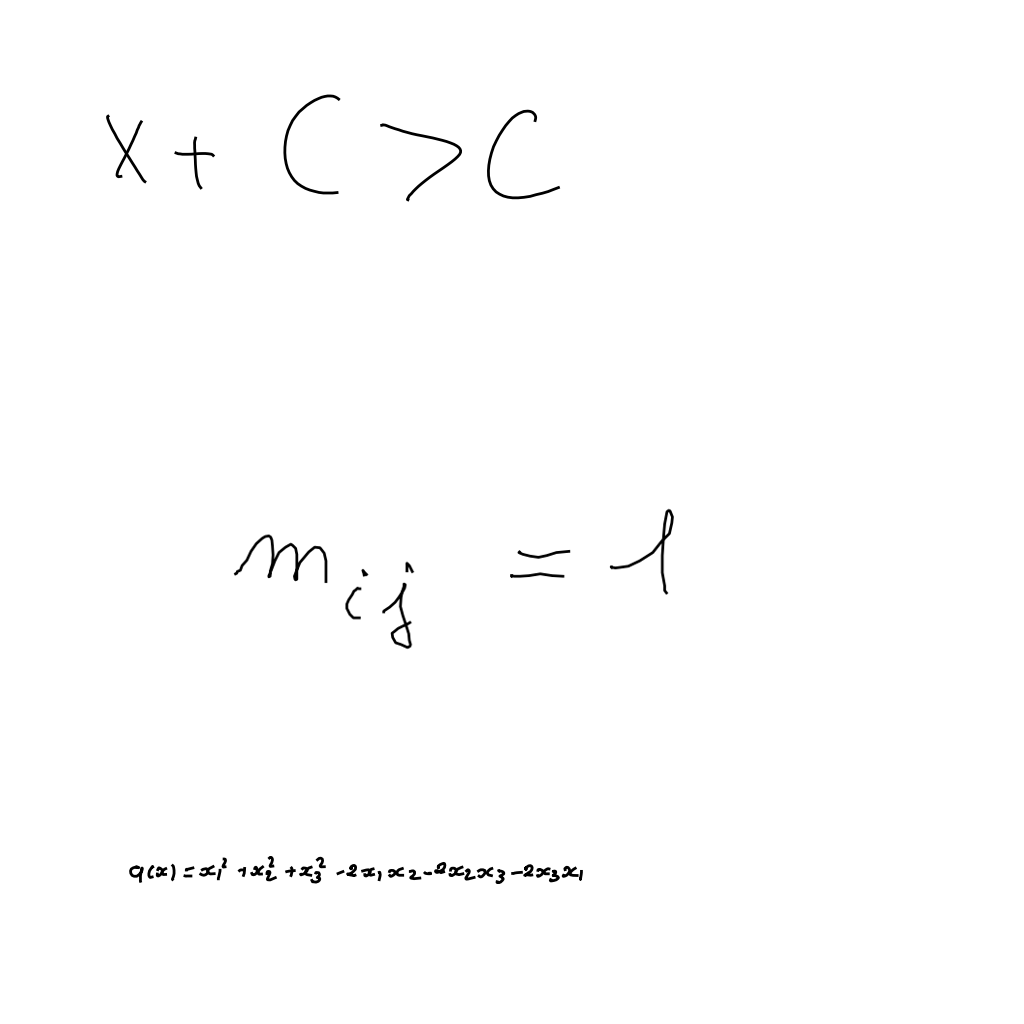 x + C > C
m_{ij} = 1
q(x) = x_1^2 + x_2^2 + x_3^2 - 2x_1x_2 - 2x_2x_3 - 2x_3x_1